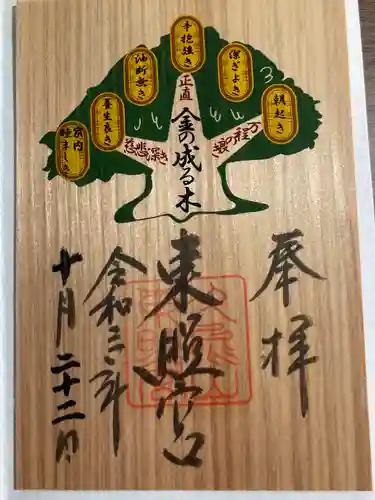 朝起き
潔ぎよき
辛抱強き
油断無き
養生良き
家内睦ましき
万程のよき
正直
慈悲深き
金の成る木
奉拝
東照宮
令和三年
十月二十二日